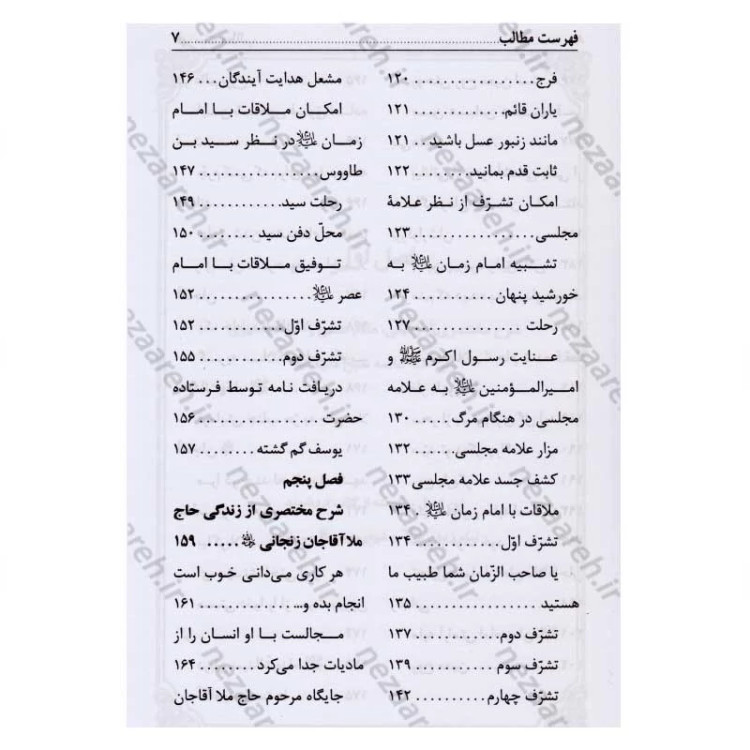 فهرست مطالب ........ ۷
فرج ................. ۱۲۰
یاران قائم ............ ۱۲۱
مانند زنبور عسل باشید .. ۱۲۱
ثابت قدم بمانید ........ ۱۲۲
امکان تشرّف از نظر علامهٔ
مجلسی ............... ۱۲۳
تشبیه امام زمان علیه‌السلام به
خورشید پنهان ......... ۱۲۴
رحلت ............... ۱۲۷
عنایت رسول اکرم ﷺ و
امیرالمؤمنین علیه‌السلام به علامه
مجلسی در هنگام مرگ .... ۱۳۰
مزار علامه مجلسی ...... ۱۳۲
کشف جسد علامه مجلسی ۱۳۳
ملاقات با امام زمان علیه‌السلام . ۱۳۴
تشرّف اوّل ............ ۱۳۴
یا صاحب الزّمان شما طبیب ما
هستید ............... ۱۳۵
تشرّف دوم ............ ۱۳۷
تشرّف سوم ........... ۱۳۹
تشرّف چهارم .......... ۱۴۲
مشعل هدایت آیندگان ... ۱۴۶
امکان ملاقات با امام
زمان علیه‌السلام در نظر سید بن
طاووس ............... ۱۴۷
رحلت سید ............ ۱۴۹
محلّ دفن سید ......... ۱۵۰
توفیق ملاقات با امام
عصر علیه‌السلام ............ ۱۵۲
تشرّف اوّل ............ ۱۵۲
تشرّف دوم ............ ۱۵۵
دریافت نامه توسط فرستاده
حضرت .............. ۱۵۶
یوسف گم گشته ........ ۱۵۷
فصل پنجم
شرح مختصری از زندگی حاج
ملاآقاجان زنجانی ...... ۱۵۹
هر کاری می‌دانی خوب است
انجام بده و... .......... ۱۶۱
مجالست با او انسان را از
مادیات جدا می‌کرد ...... ۱۶۴
جایگاه مرحوم حاج ملا آقاجان
nezaareh.ir